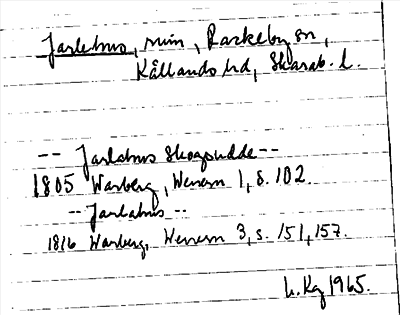 Jarlehus, ruin, Rackeby sn,
Kållands hd, Skarab. l.
-- Jarlahus Skogsudde --
1805 Warberg, Wenern 1, s. 102.
-- Jarlahus --
1816 Warberg, Wenern 3, s. 151, 157.
1965.